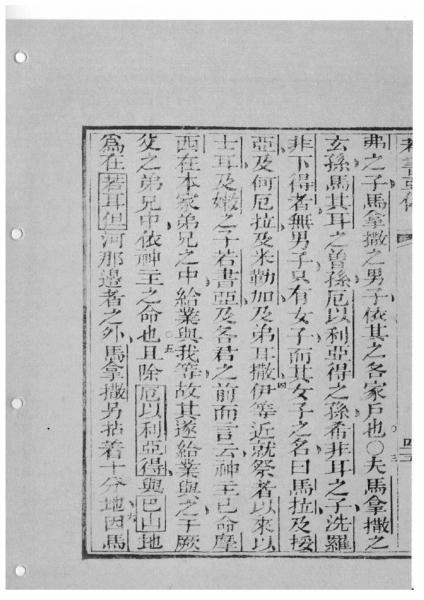 弗之子馬拿撒之男子依其之各家戶也○三夫馬拿撒之
玄孫馬其耳之曾孫厄以利亞得之孫希非耳之子洗羅
非下得者無男子只有女子而其女子之名曰馬拉及挼
亞及何厄拉及米勒加及弟耳撒四伊等近就祭者以來以
士耳及嫩之子若書亞及各君之前而言云神主已命摩
西在本家弟兄之中給業與我等故其遂給業與之于厥
父之弟兄中依神主之命也五且除厄以利亞得與巴山地
爲在若耳但河那邊者之外馬拿撒另拈着十分地六因馬